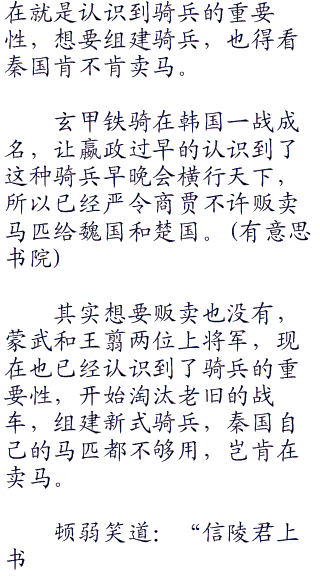 在就是认识到骑兵的重要
性，想要组建骑兵，也得看
秦国肯不肯卖马。
玄甲铁骑在韩国一战成
名，让嬴政过早的认识到了
这种骑兵早晚会横行天下，
所以已经严令商贾不许贩卖
马匹给魏国和楚国。(有意思
书院)
其实想要贩卖也没有，
蒙武和王翦两位上将军，现
在也已经认识到了骑兵的重
要性，开始淘汰老旧的战
车，组建新式骑兵，秦国自
己的马匹都不够用，岂肯在
卖马。
顿弱笑道：“信陵君上
书